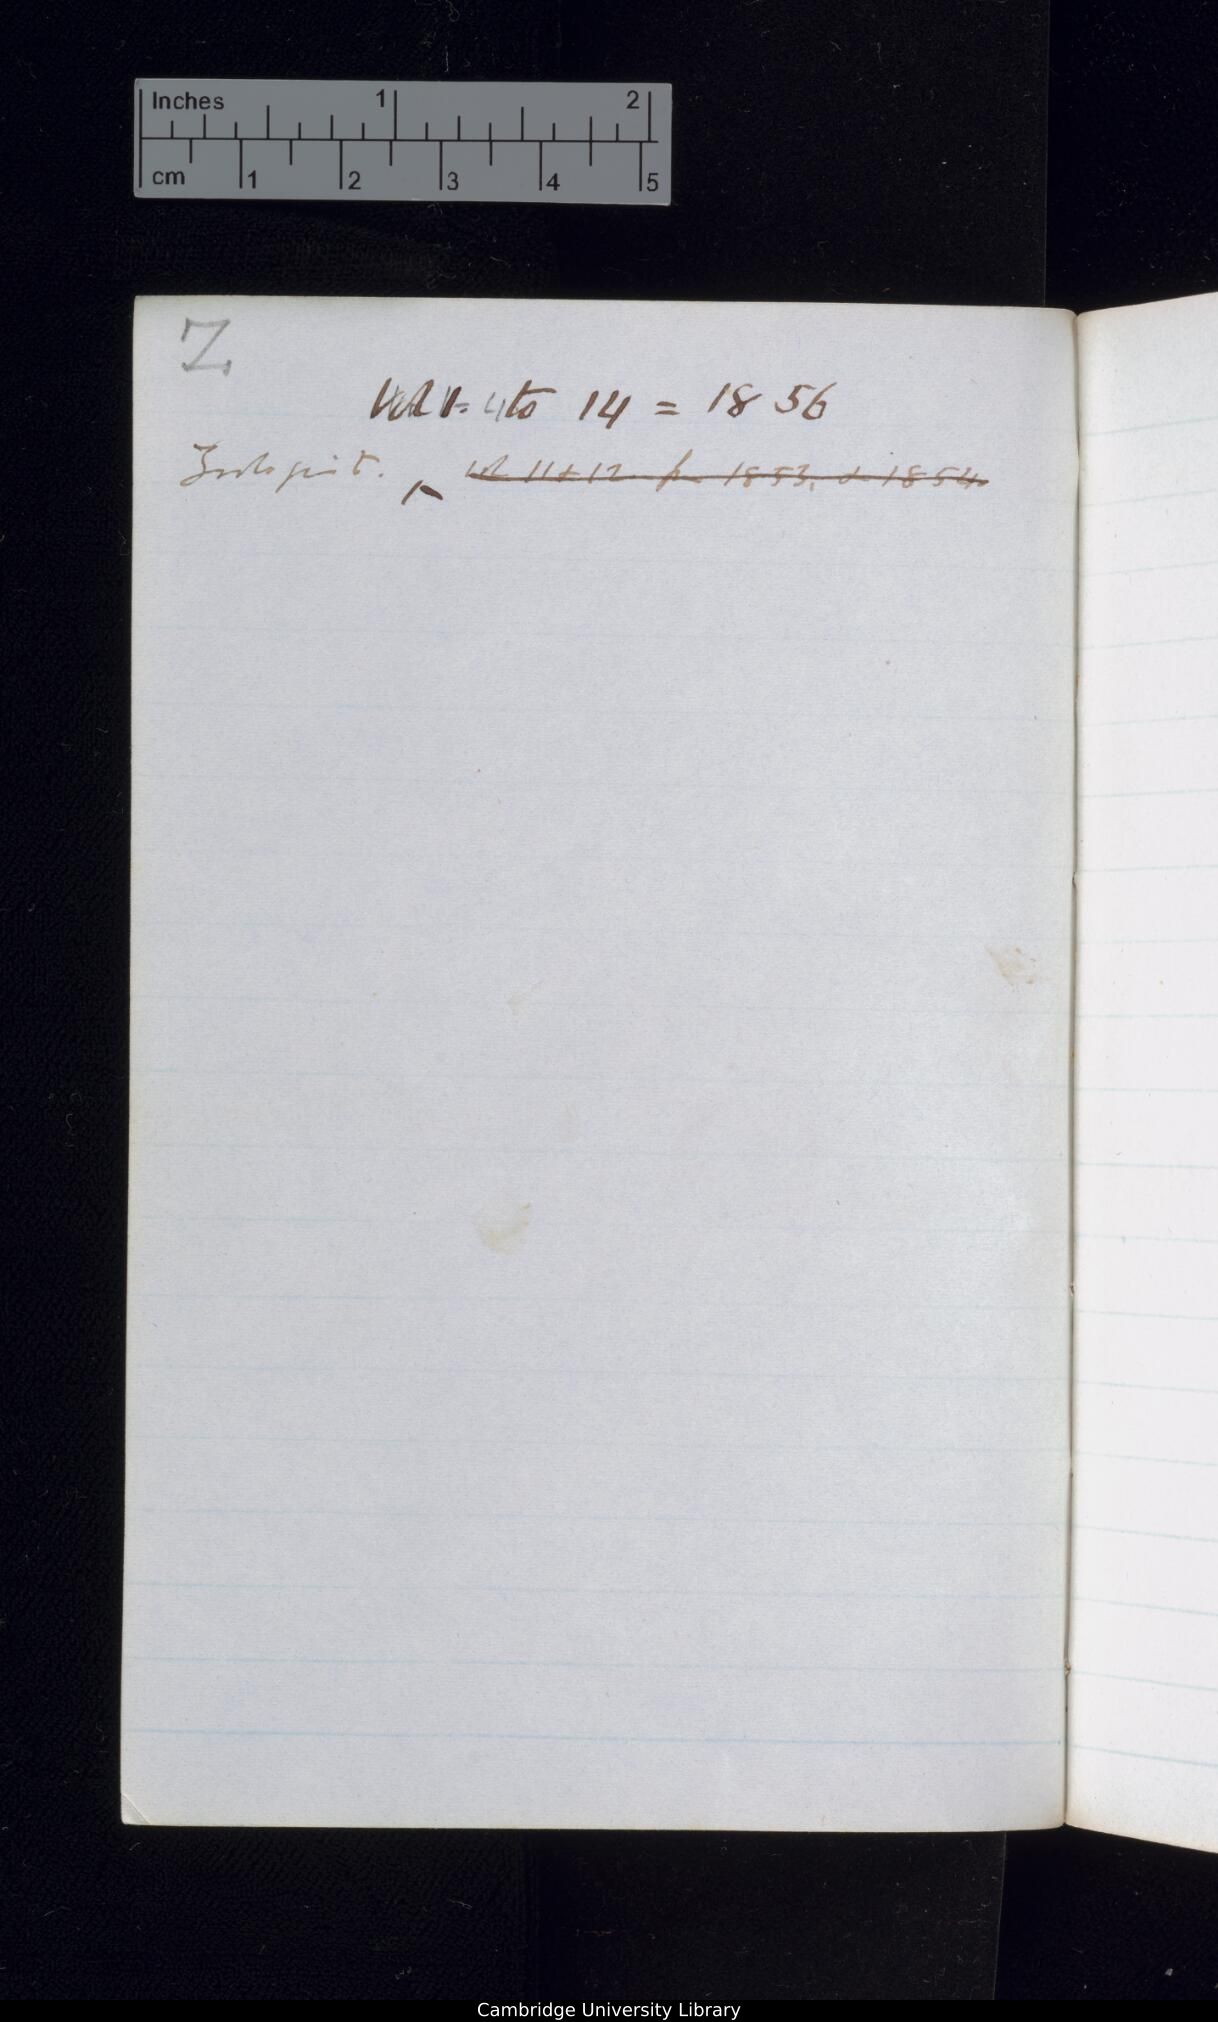 Inches 1 2
cm 1 2 3 4 5
Z
Vol 1. to 14 = 1856
Zoologist. ^ vol 11 & 12 for 1853, & 1854.
Cambridge University Library